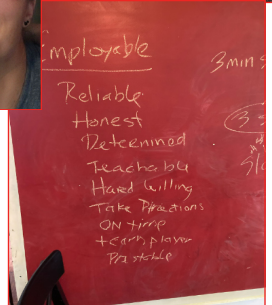 Employable
3 min
Reliable
Honest
Determined
Teachable
Hard Willing
Take Directions
ON time
team player